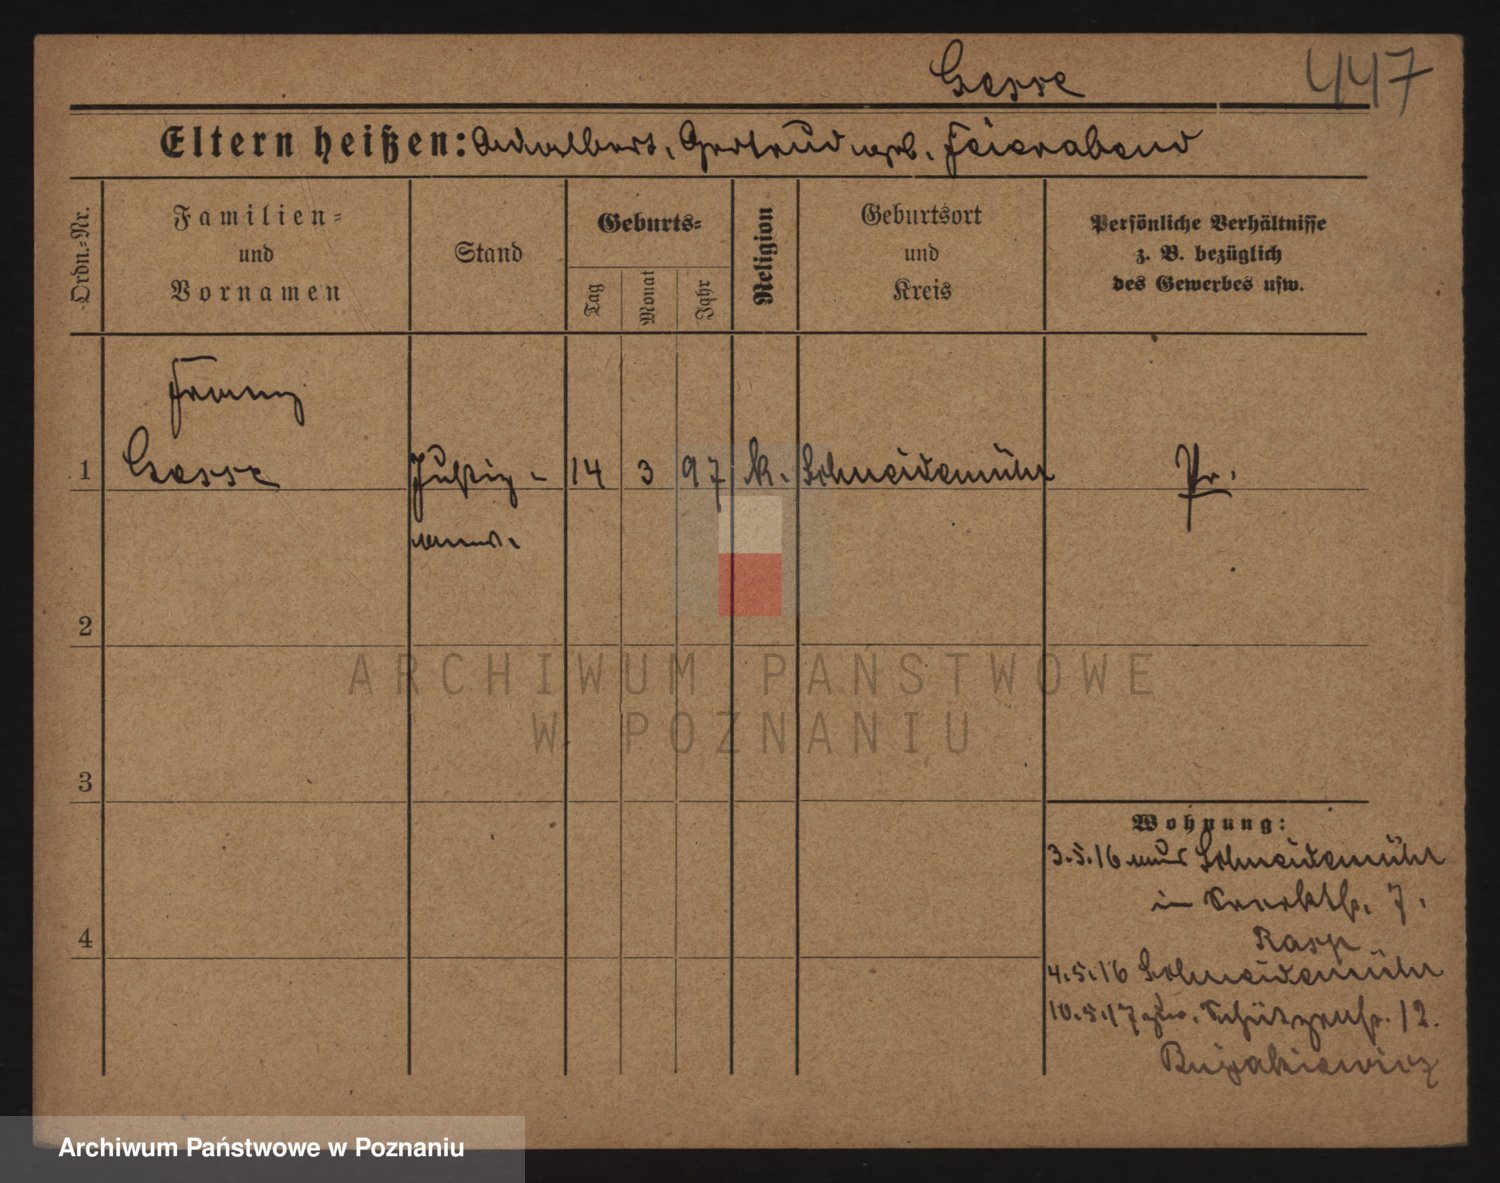 Gesse 447
Eltern heißen: Adalbert, Gertrud geb. Feierabend
Ordn.-Nr.
Familien-
und
Vornamen
Stand
Geburts-
Tag
Monat
Jahr
Religion
Geburtsort
und
Kreis
Persönliche Verhältnisse
z. B. bezüglich
des Gewerbes usw.
Franz
1 Gesse Justiz- 14 3 97 k. Schneidemühl Pr.
anw.
2
3
4
Wohnung:
3.5.16 aus Schneidemühl
in 7.
Rasp
4.5.16 Schneidemühl
10.5.17 Schützenstr. 12.
ARCHIWUM PAŃSTWOWE
W POZNANIU
Archiwum Państwowe w Poznaniu